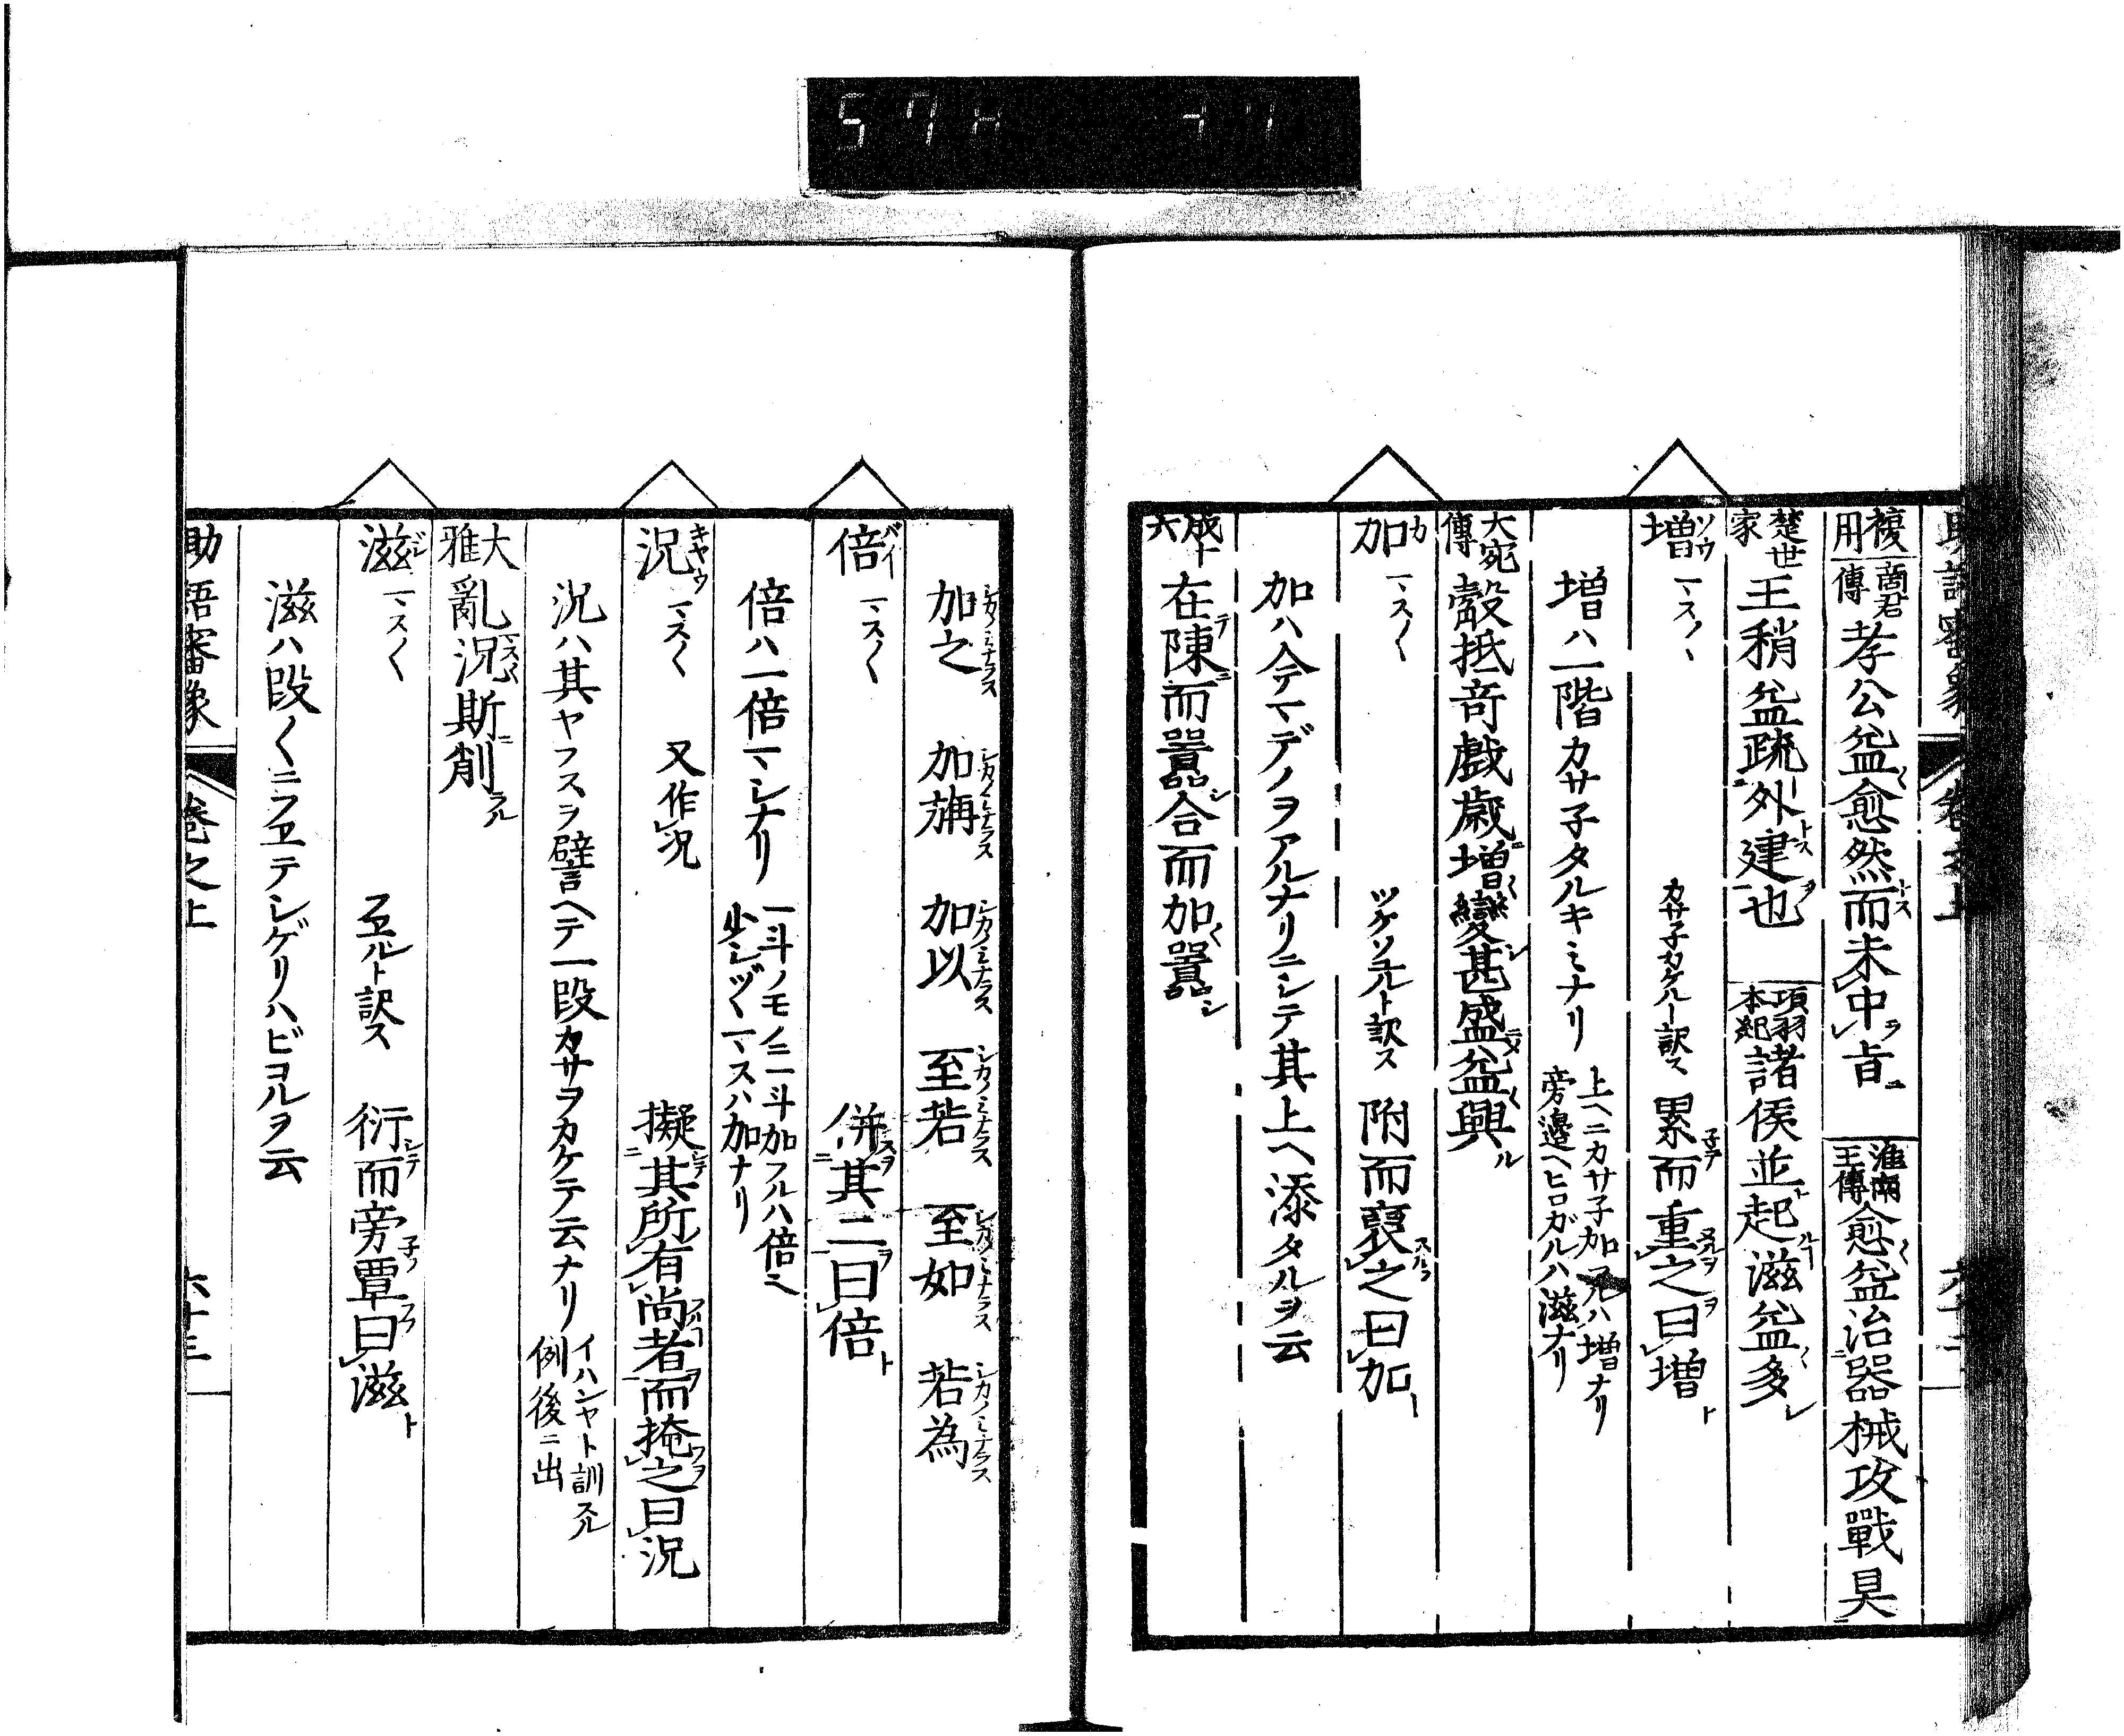 複用 商君傳 孝公益愈然而未中旨 淮南王傳 愈益治器械攻戰具
楚世家 王稍益疏外建也 項羽本紀 諸侯並起滋益多
増 ソウ マス〳〵 カサ子カケルト訳ス 累而重之曰増
増ハ一階カサ子タルキミナリ 上ヘニカサ子加フルハ増ナリ 旁邊ヘヒロガルハ滋ナリ
大宛傳 觳抵奇戲歳增變甚盛益興
加 カ マス〳〵 ツケソユルト訳ス 附而裒之曰加
加ハ今マデノヲアルナリニシテ其上ヘ添タルヲ云
成十六 在陳而嚚合而加嚚
加之 加旃 加以 至若 至如 若為
倍 バイ マス〳〵 併其二曰倍
倍ハ一倍マシナリ 一斗ノモノニ一斗加フルハ倍ニ 少シヅヽマスハ加ナリ
况 キヤウ マス〳〵 又作況 擬其所有尚者而掩之曰況
況ハ其ヤフスヲ譬ヘテ一段カサヲカケテ云ナリ イハンヤト訓スル例後ニ出
大雅 亂況斯削
滋 ジ マス〳〵 フヱルト訳ス 衍而旁覃曰滋
滋ハ段〳〵ニフヱテシゲリハビコルヲ云
助語審象 卷之上 六十三